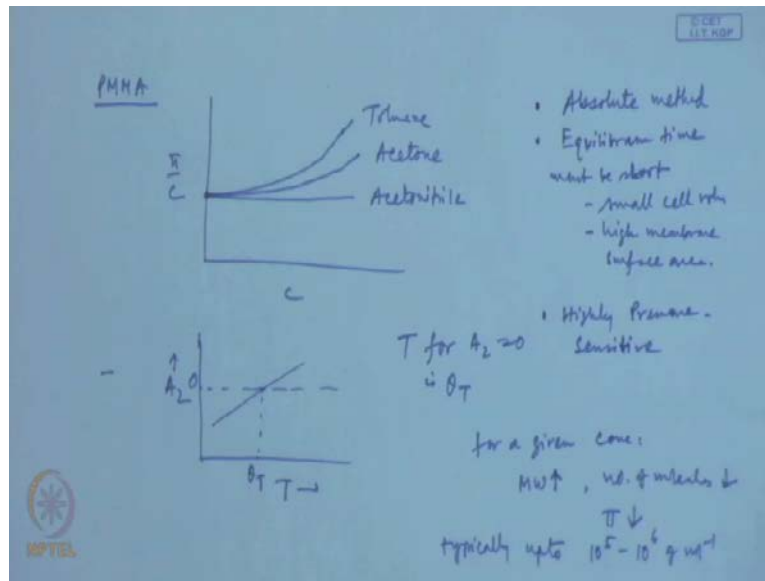 © CET
I.I.T. KGP
PMMA
π/C
Toluene
Acetone
Acetonitrile
C
A2 0
θT T →
T for A2 = 0
is θT
• Absolute method
• Equilibrium time
must be short
- small cell vol
- high membrane
surface area.
• Highly Pressure-
Sensitive
for a given conc:
MW↑, no. of molecules ↓
π ↓
typically upto 10^5 - 10^6 g mol^-1
NPTEL